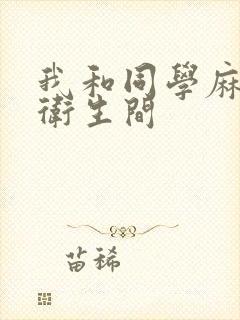 我和同學麻
衛生間
苗稀